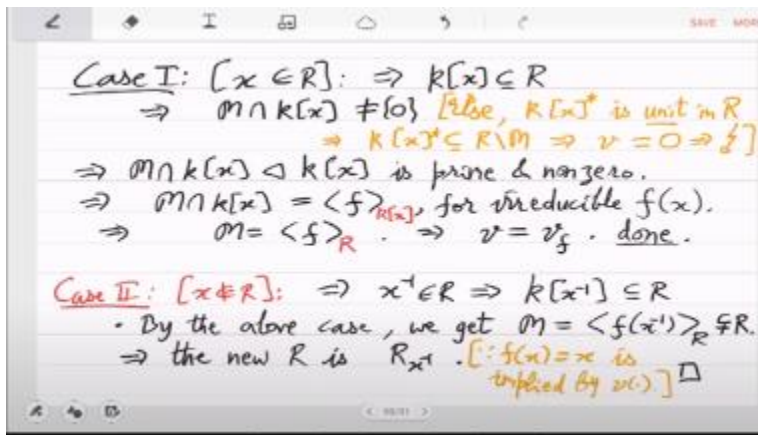 SAVE MOR
Case I: [x ∈ R]: ⇒ k[x] ⊆ R
⇒ m ∩ k[x] ≠ {0} [Else, k[x]* is unit in R
⇒ k[x]* ⊆ R\m ⇒ v = 0 ⇒ ↯]
⇒ m ∩ k[x] ◁ k[x] is prime & nonzero.
⇒ m ∩ k[x] = <f>_k[x], for irreducible f(x).
⇒ m = <f>_R . ⇒ v = v_f . done.
Case II: [x ∉ R]: ⇒ x⁻¹ ∈ R ⇒ k[x⁻¹] ⊆ R
· By the above case, we get m = <f(x⁻¹)>_R ⊊ R.
⇒ the new R is R_x⁻¹ . [∵ f(x) = x is
implied by v(·).] □